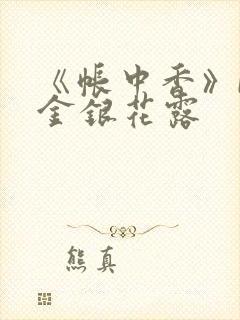 《帐中香》
金银花露
熊真